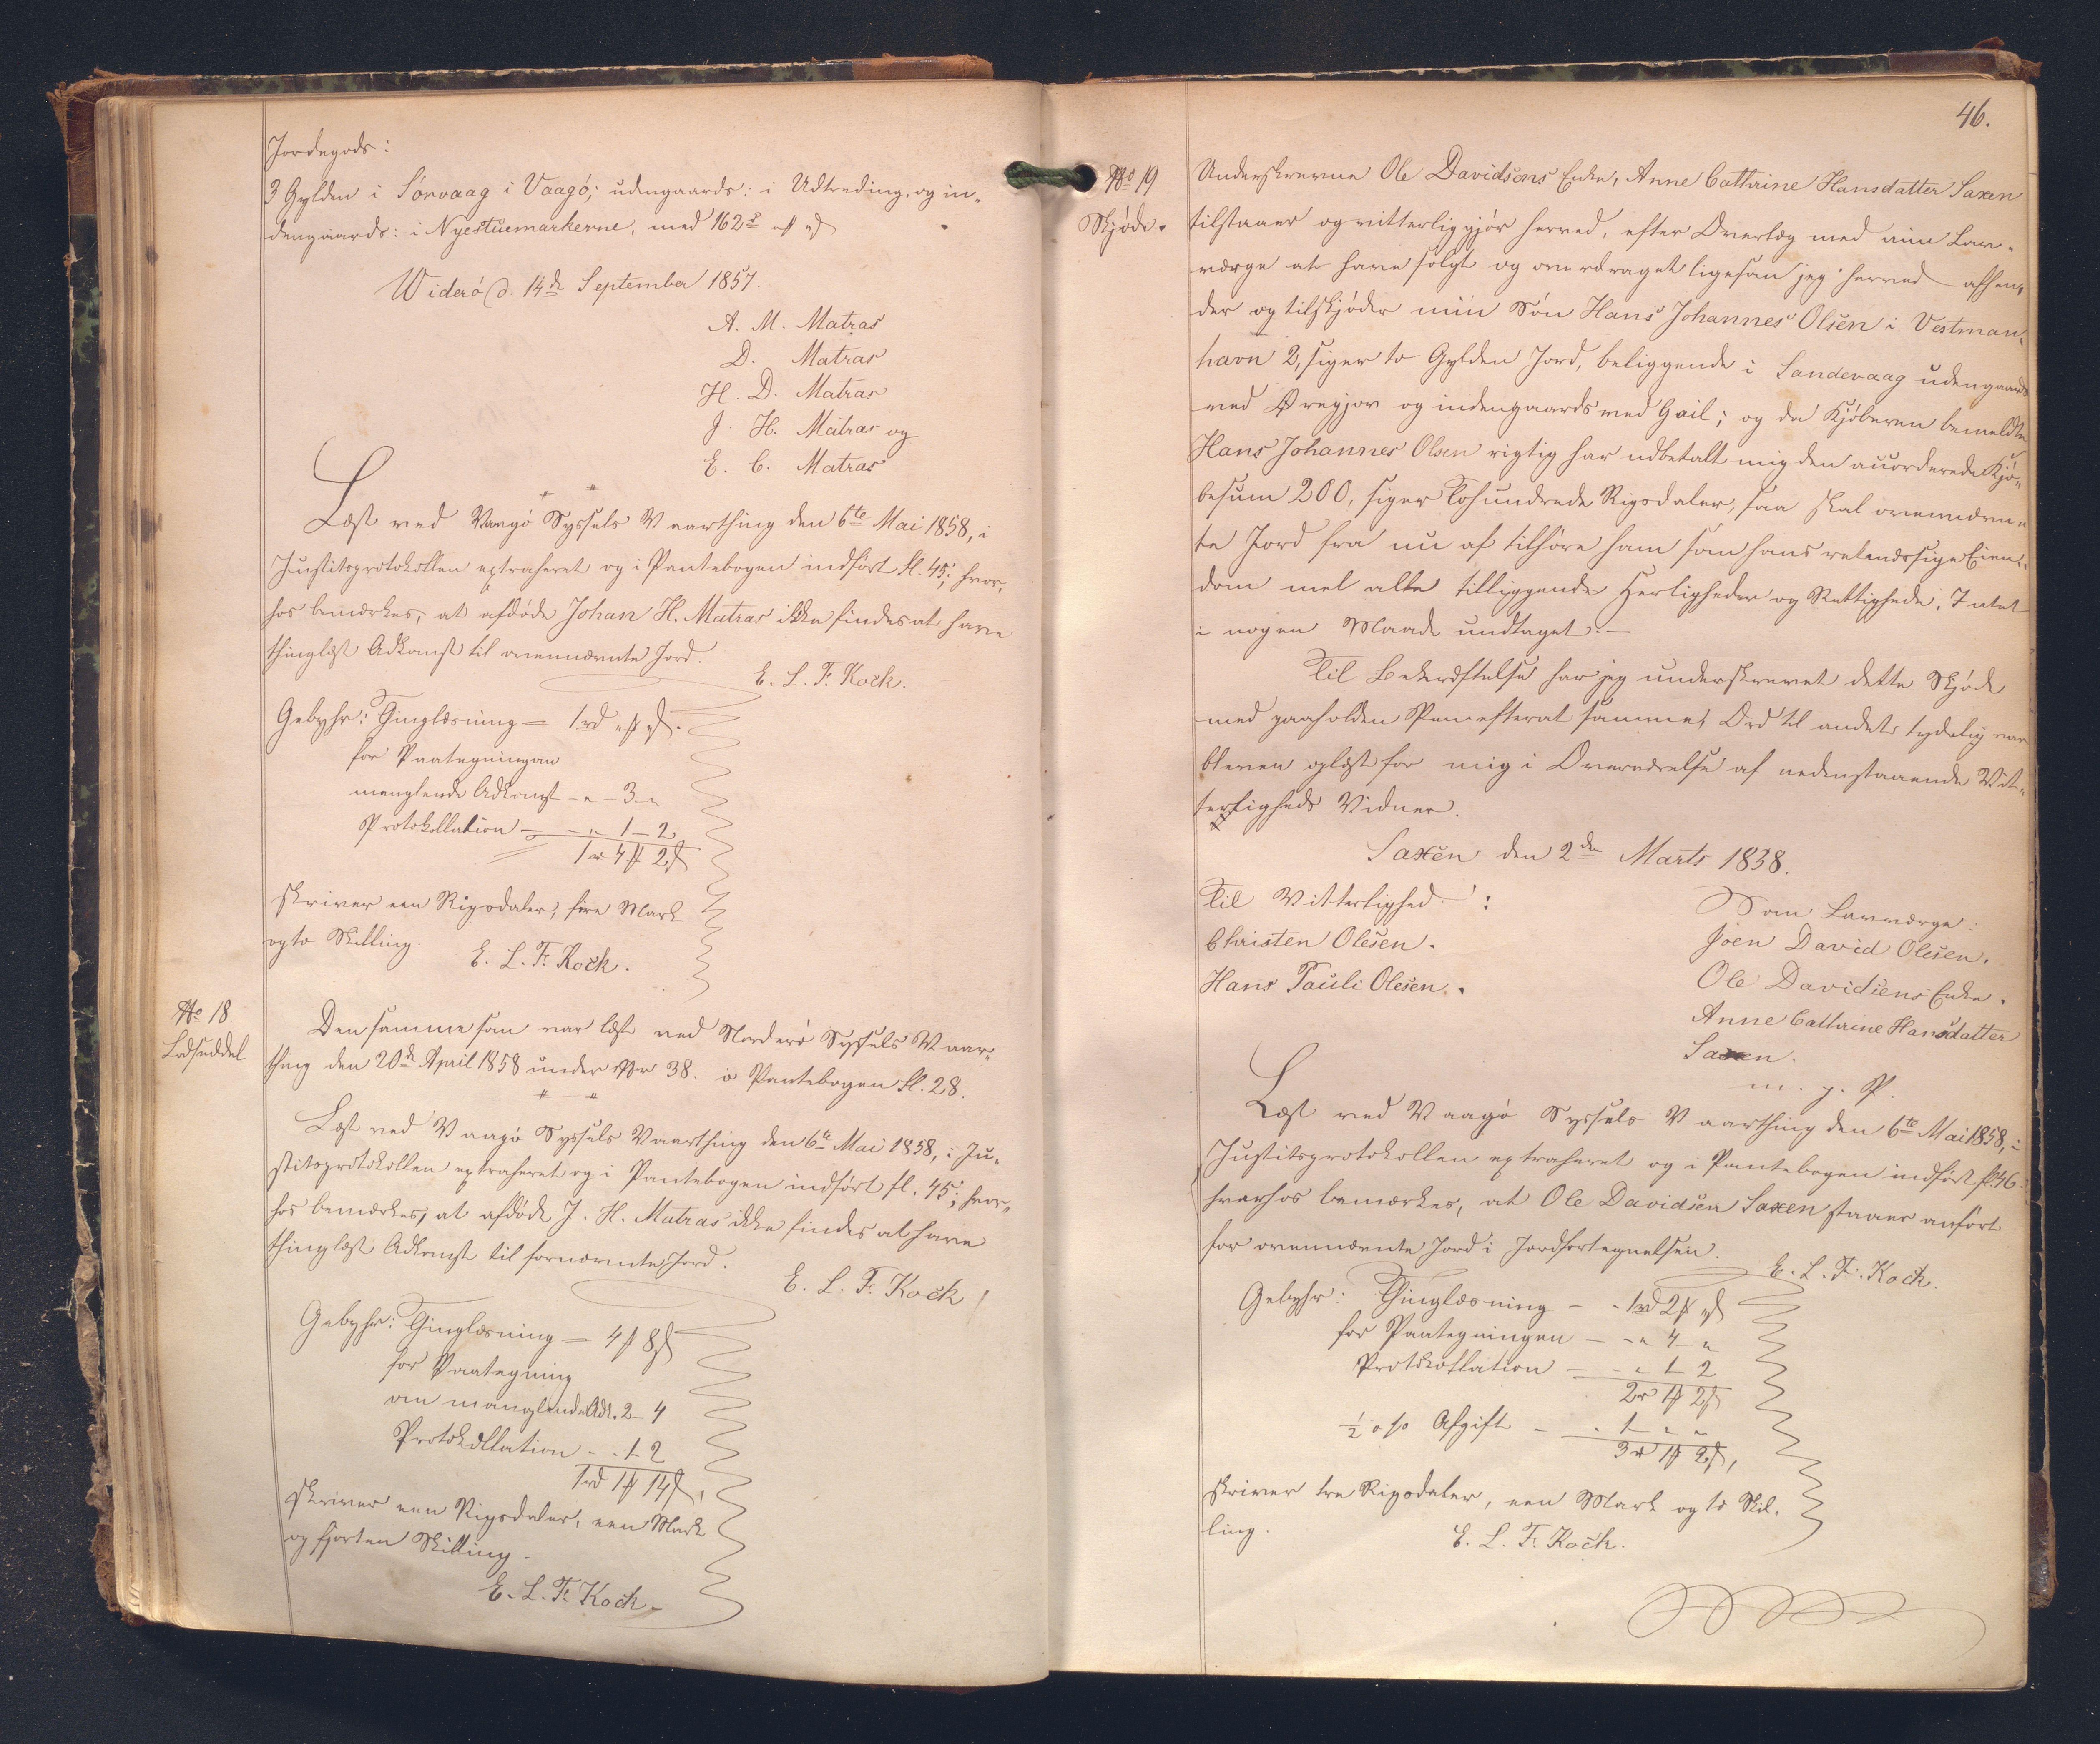 Jordegods:
3 Gylden i Sörvaag i Vaagö; udengaards: i Udtreding, og in-
dengaards: i Nyestuemarkerne, med 162
Widerö d. 14de September 1857.
A. M. Matras
D. Matras
H. D. Matras
J. H. Matras og
E. C. Matras
Læst ved Vaagö Syssels Vaarthing den 6te Mai 1858, i
Justitsprotokollen extraheret og i Pantebogen indfört fl. 45; hvor-
hos bemærkes, at afdöde Johan H. Matras ikke findes at have
thinglæst Adkomst til ovennævnte Jord.
E. L. F. Koch.
Gebyhr: Thinglæsning = 1rd
for Paategning om
manglende Adkomst - " - 3 - "
Protokollation - " 1 - 2
1rd 4 2
skriver een Rigsdaler, fire Mark
og to Skilling.
E. L. F. Koch.
No 18
Lodseddel
Den samme som var læst ved Norderö Syssels Vaar-
thing den 20de April 1858 under No 38. i Pantebogen fl. 28.
Læst ved Vaagö Syssels Vaarthing den 6te Mai 1858, i Ju-
stitsprotokollen extraheret og i Pantebogen indfört fl. 45; hvor-
hos bemærkes, at afdöde J. H. Matras ikke findes at have
thinglæst Adkomst til fornævnte Jord.
E. L. F. Koch
Gebyhr: Thinglæsning = 4 8
for Paategning
om manglende Adk. 2 - 4
Protokollation - - 1 2
1rd 1 14
skriver een Rigsdaler, een Mark
og fjorten Skilling.
E. L. F. Koch
46.
No 19
Skjöde.
Underskrevne Ole Davidsens Enke, Anne Cathrine Hansdatter Saxen
tilstaaer og vitterliggjör herved, efter Overlæg med min Lav-
værge at have solgt og overdraget ligesom jeg herved afhen-
der og tilskjöder min Sön Hans Johannes Olsen i Vestman-
havn 2, siger to Gylden Jord, beliggende i Sandevaag udengaards
ved Öregjov og indengaards ved Gail; og da Kjöberen bemeldte
Hans Johannes Olsen rigtig har udbetalt mig den accorderede Kjö-
besum 200, siger Tohundrede Rigsdaler, saa skal ovennævn-
te Jord fra nu af tilhöre ham som hans retmæssige Eien-
dom med alle tilliggende Herligheder og Rettigheder, Intet
i nogen Maade undtaget.
Til Bekræftelse har jeg underskrevet dette Skjöde
med paaholden Pen efterat samme, Ord til andet, tydelig var
bleven oplæst for mig i Overværelse af nedenstaaende Vit-
terligheds Vidner.
Saxen den 2den Marts 1838.
Til Vitterlighed:
Christen Olesen.
Hans Pauli Olesen.
Som Lavværge:
Joen David Olesen.
Ole Davidsens Enke.
Anne Cathrine Hansdatter
Saxen.
m. p. P.
Læst ved Vaagö Syssels Vaarthing den 6te Mai 1858, i
Justitsprotokollen extraheret og i Pantebogen indfört fl. 46.
hvorhos bemærkes, at Ole Davidsen Saxen staaer anfört
for ovennævnte Jord i Jordfortegnelsen.
E. L. F. Koch.
Gebyhr: Thinglæsning - - 1rd 2
for Paategningen - - " 4 - "
Protokollation - - " 1 - 2
2rd 1 2
½ o/o Afgift - - 1 - " - "
3rd 1 2,
skriver tre Rigsdaler, een Mark og to Skil-
ling.
E. L. F. Koch.